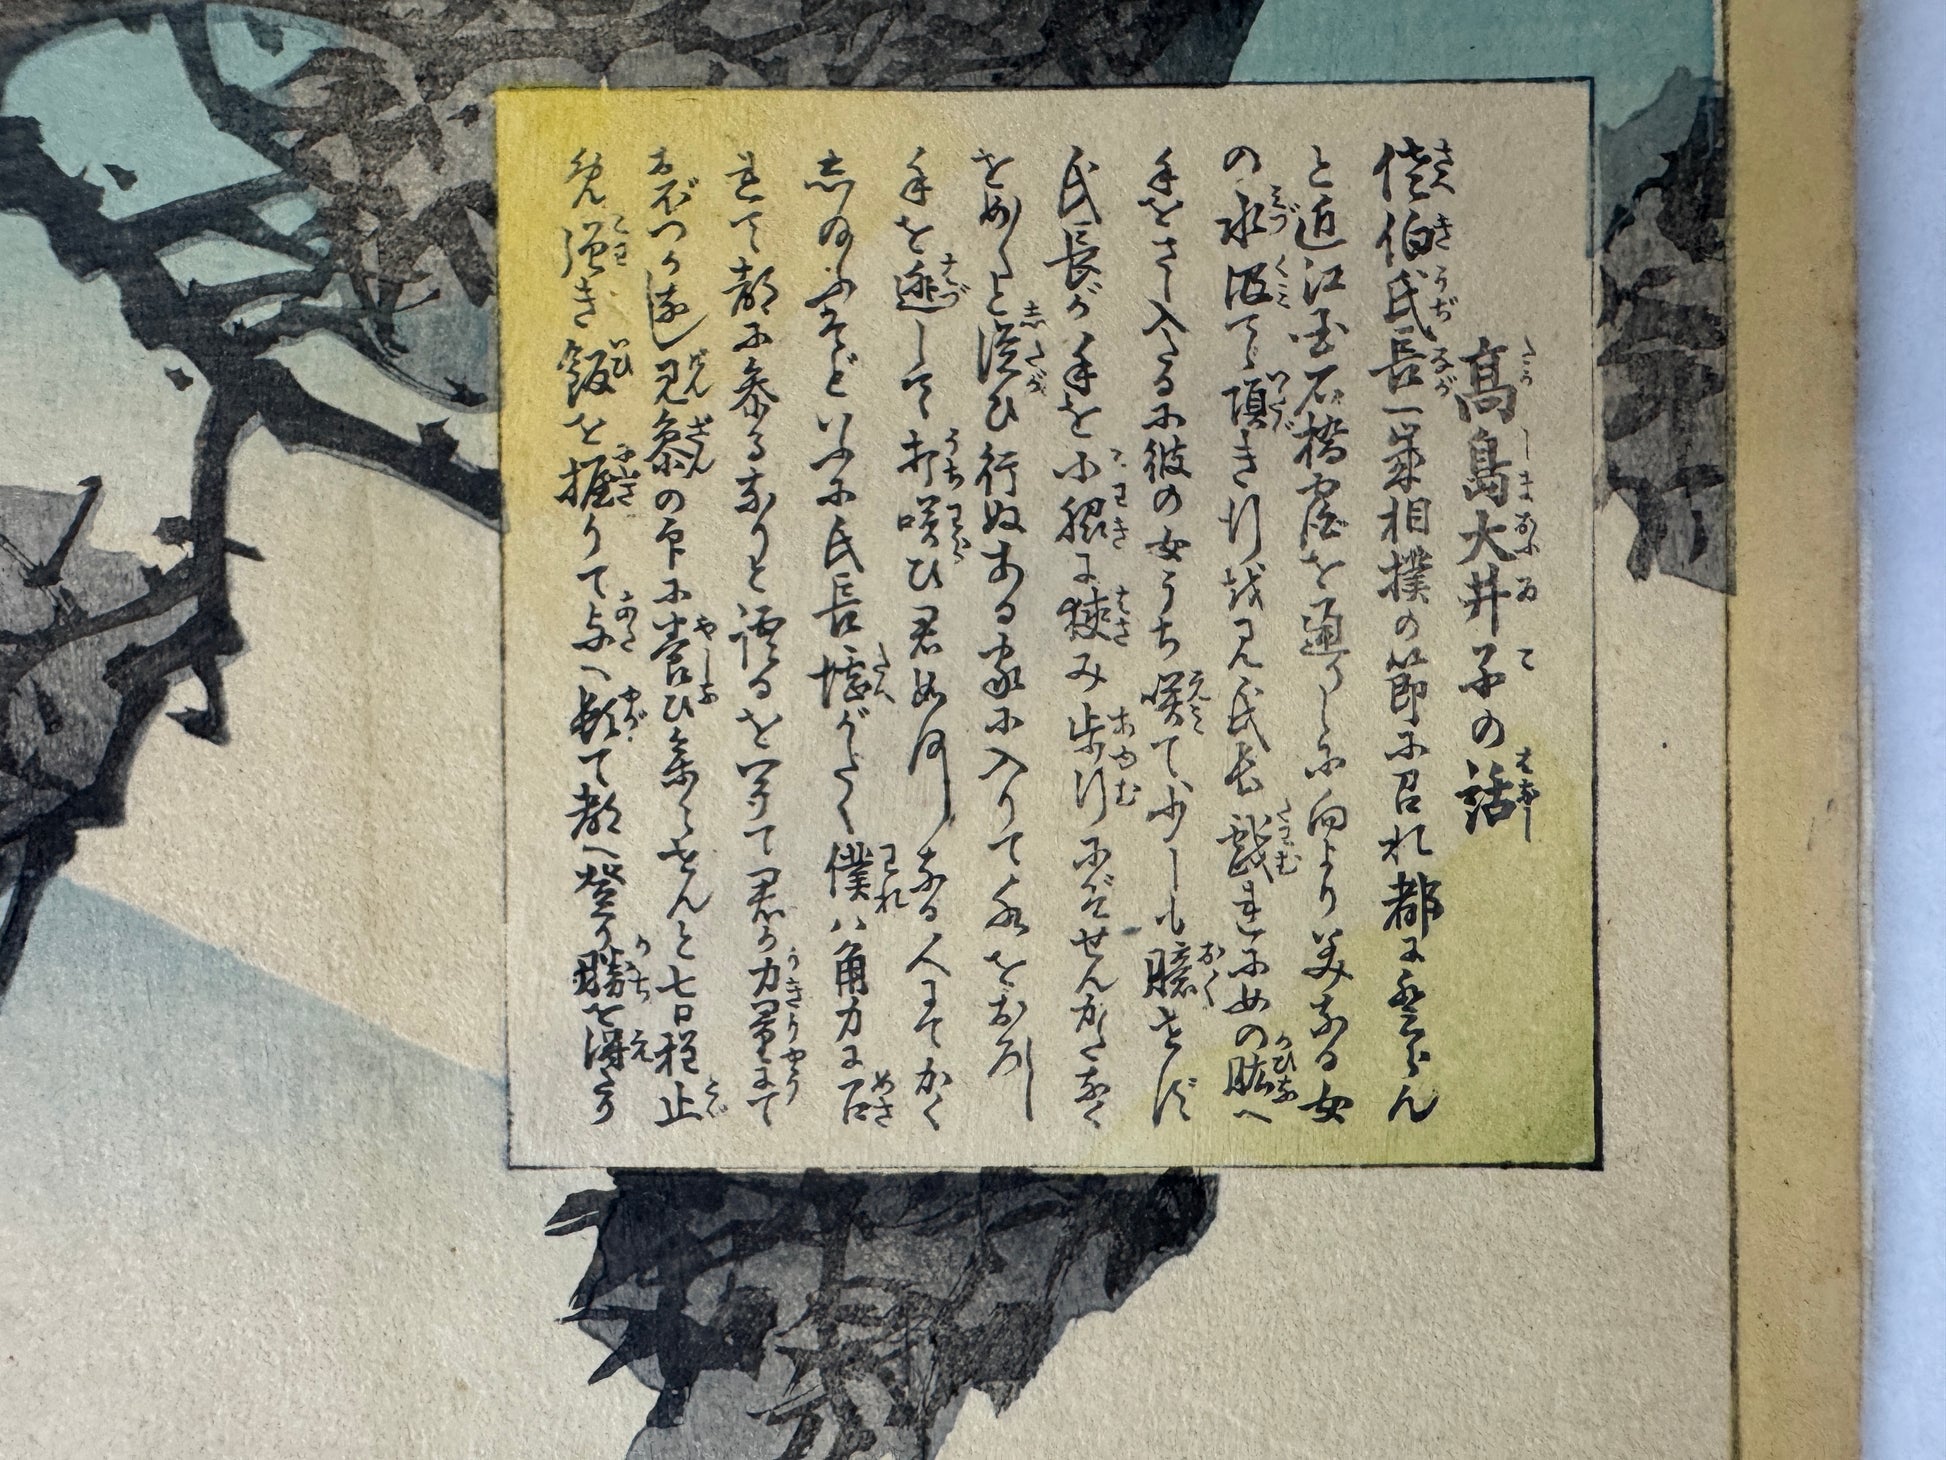 高島大井子の話
佐伯氏長一年相撲の節に召れ都に登らん
と近江国石橋宿を通りしに向より美なる女
の水汲て頂き行を見氏長戯れに女の肱へ
手をさし入たるに彼の女うち咲て少しも臆せず
氏長が手を小脇に狭み歩行にぞせんかたなく
をめ〳〵と従ひ行ぬある家に入りて水をおろし
手を逃して打咲ひ君如何なる人にてかく
し給ふぞといふに氏長堪がたく僕ハ角力に召
れて都に参るなりと語るを聞て君が力量にて
おぼつかなし見参の印に養ひ参らせんと七日程止
め強き飯を握りて与へ頓て都へ登り勝を得たり